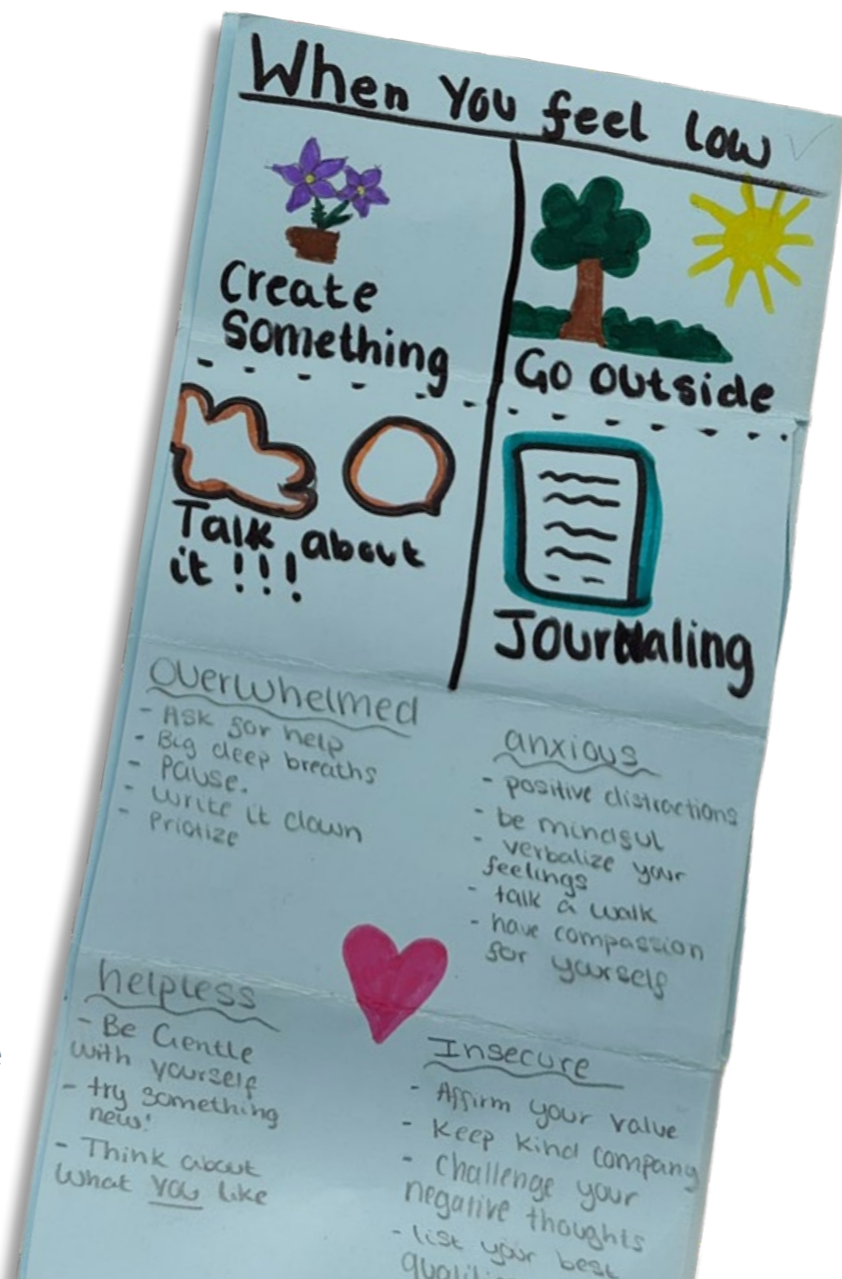 When You feel low
Create
something
Go outside
Talk about
it !!!
Journaling
Overwhelmed
- Ask for help
- Big deep breaths
- Pause.
- Write it down
- Priotize
anxious
- positive distractions
- be mindful
- verbalize your
feelings
- talk a walk
- have compassion
for yourself
helpless
- Be Gentle
with yourself
- try something
new!
- Think about
what YOU like
Insecure
- Affirm your value
- Keep kind company
- Challenge your
negative thoughts
- list your best